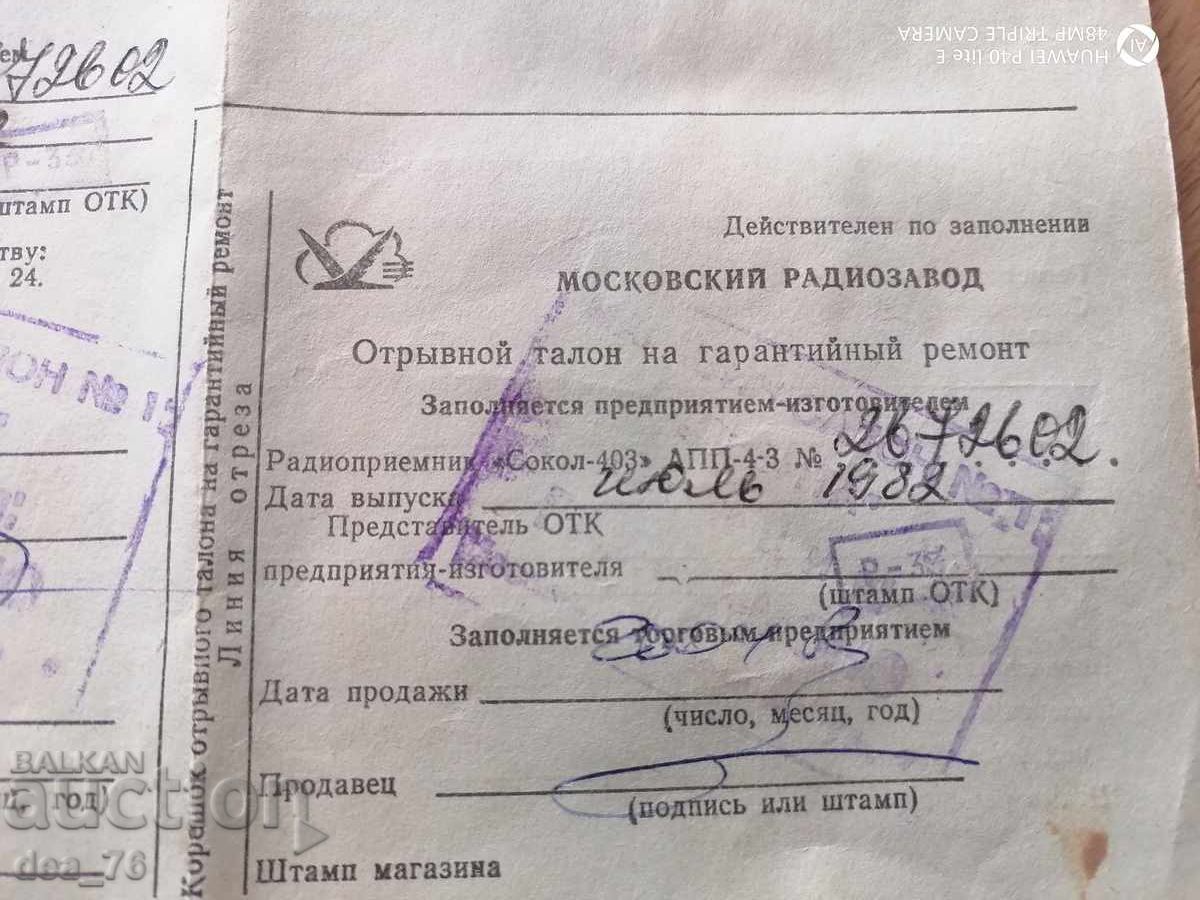 72602
штамп ОТК)
тву:
24.
ц, год)
Корешок отрывного талона на гарантийный ремонт
Линия отреза
Действителен по заполнении
МОСКОВСКИЙ РАДИОЗАВОД
Отрывной талон на гарантийный ремонт
Заполняется предприятием-изготовителем
Радиоприемник «Сокол-403» АПП-4-3 № 2672602.
Дата выпуска июль 1982
Представитель ОТК
предприятия-изготовителя
Р-35
(штамп ОТК)
Заполняется торговым предприятием
Дата продажи
(число, месяц, год)
Продавец
(подпись или штамп)
Штамп магазина
HUAWEI P40 lite E
48MP TRIPLE CAMERA
AI
BALKAN
auction
dea_76